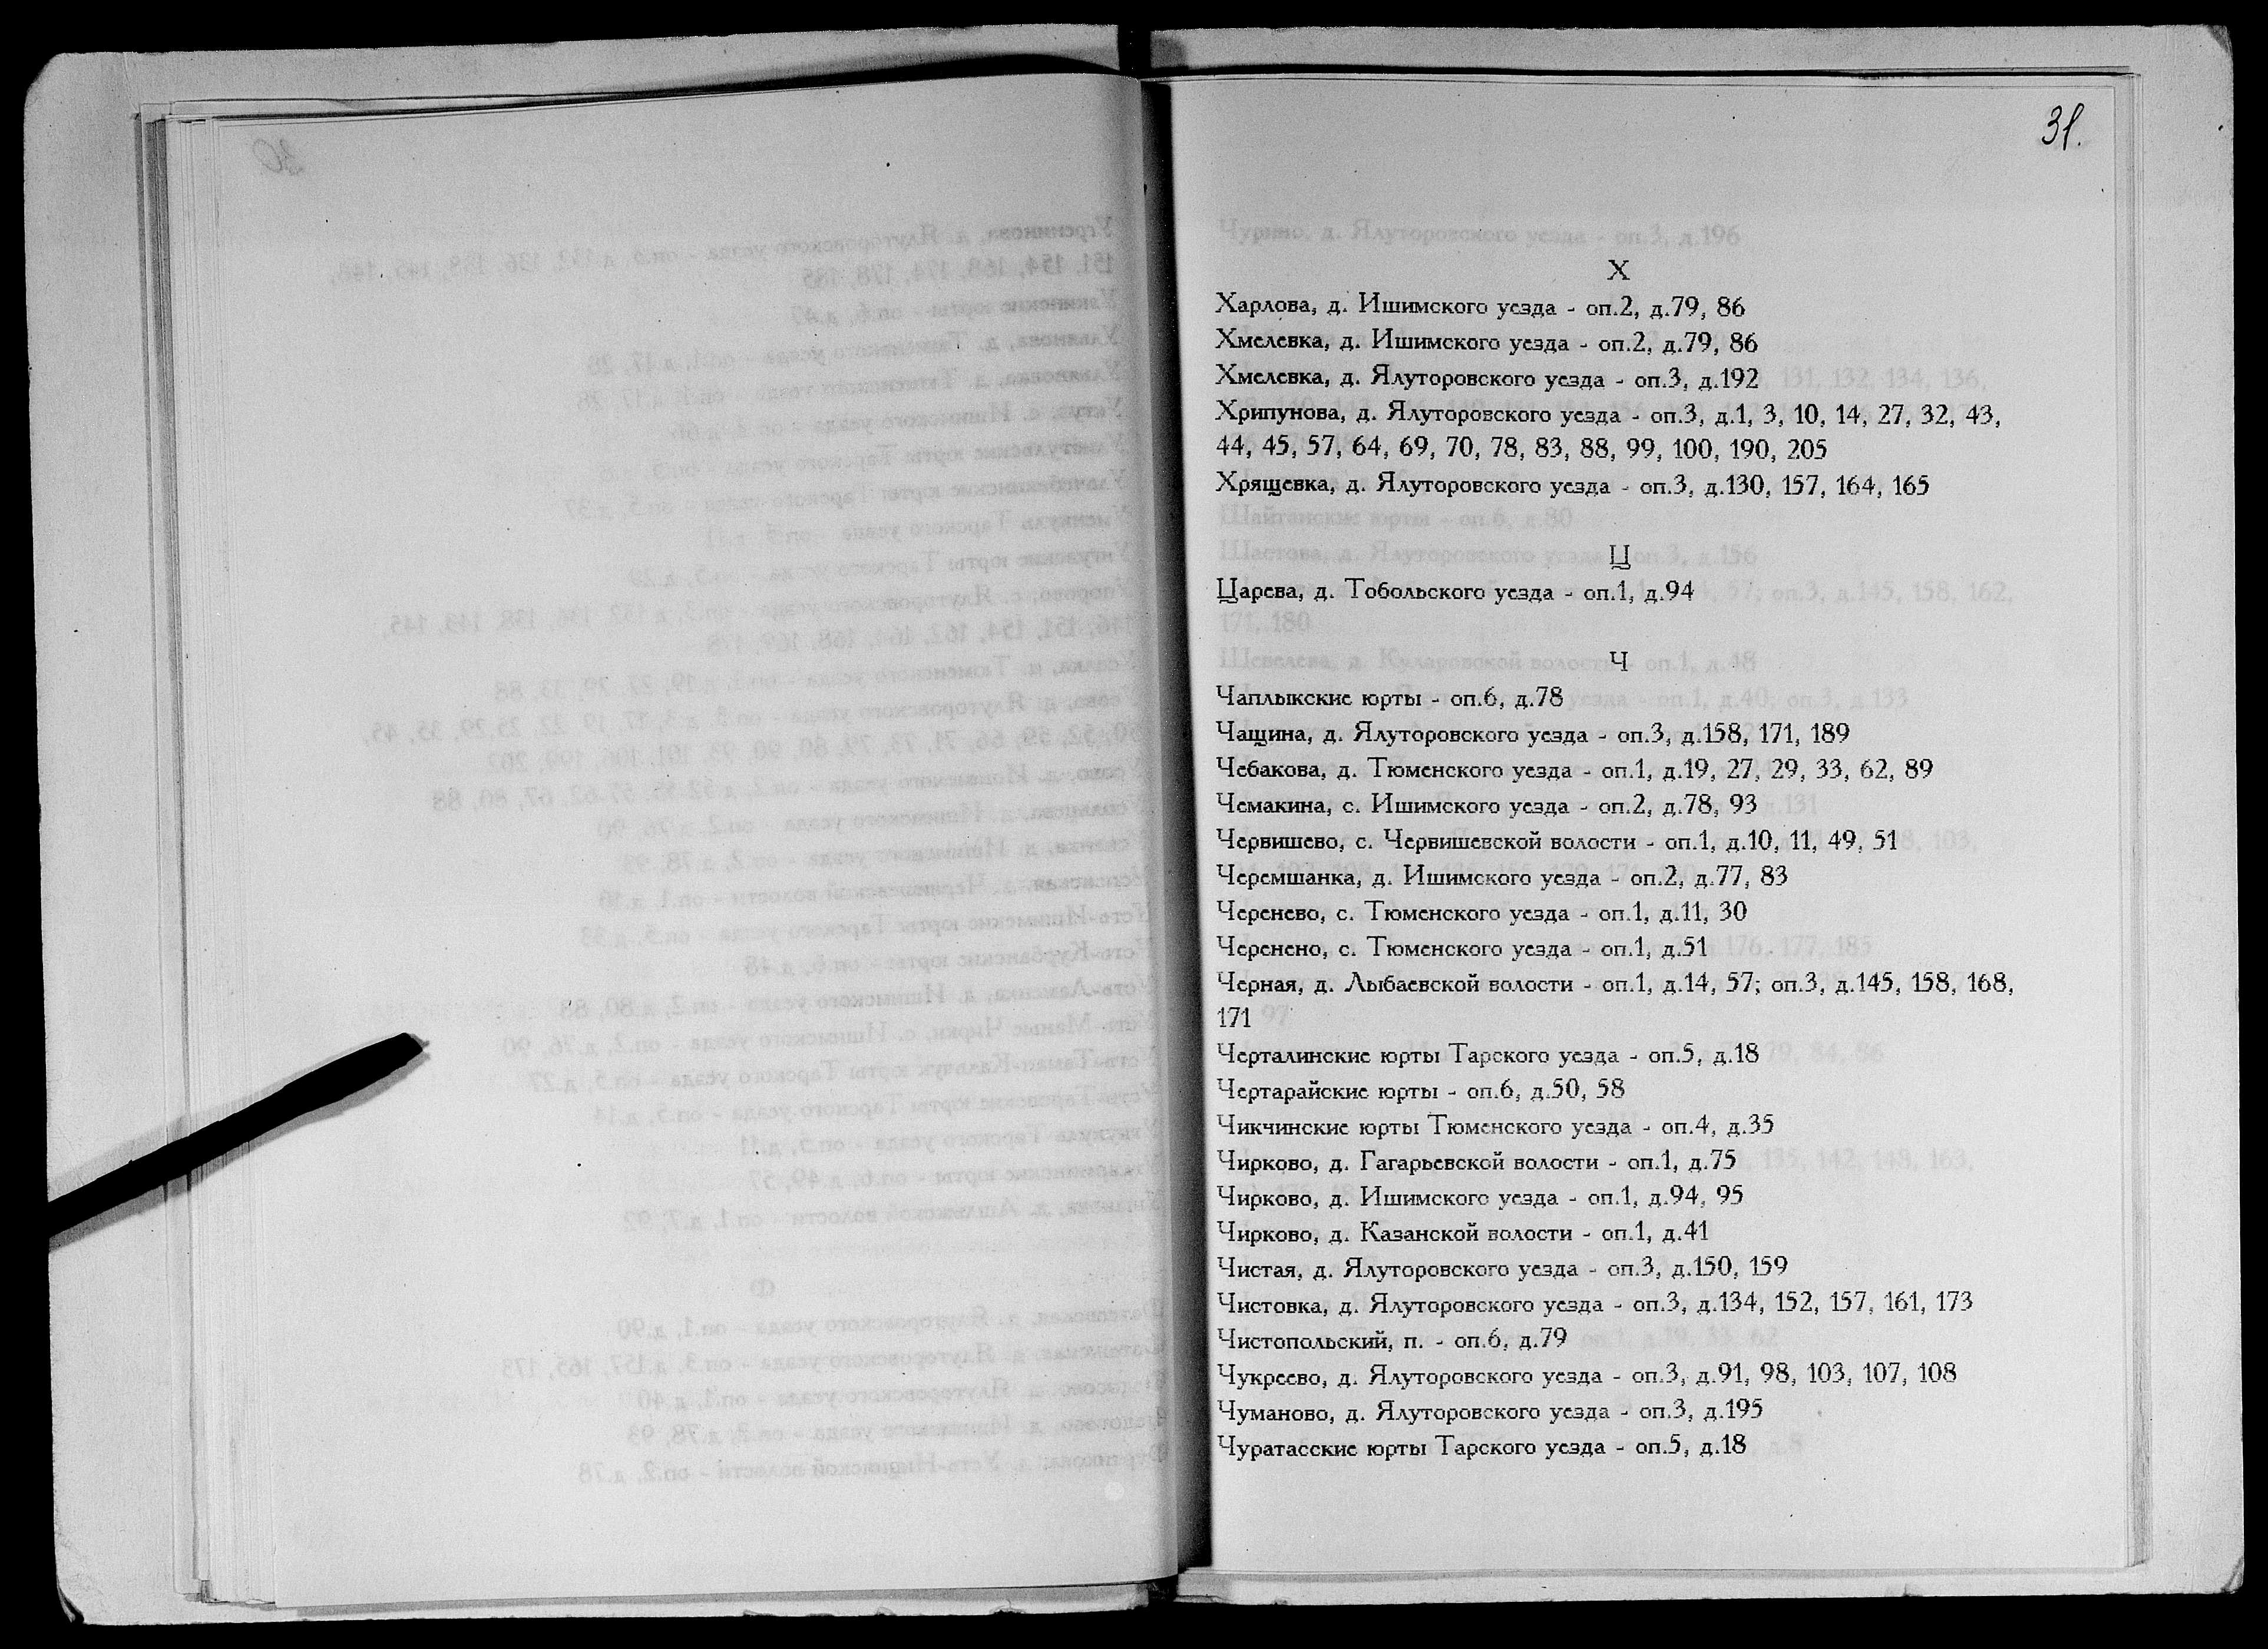 31.
Х
Харлова, д. Ишимского уезда - оп.2, д.79, 86
Хмелевка, д. Ишимского уезда - оп.2, д.79, 86
Хмелевка, д. Ялуторовского уезда - оп.3, д.192
Хрипунова, д. Ялуторовского уезда - оп.3, д.1, 3, 10, 14, 27, 32, 43,
44, 45, 57, 64, 69, 70, 78, 83, 88, 99, 100, 190, 205
Хрящевка, д. Ялуторовского уезда - оп.3, д.130, 157, 164, 165
Ц
Царева, д. Тобольского уезда - оп.1, д.94
Ч
Чаплыкские юрты - оп.6, д.78
Чащина, д. Ялуторовского уезда - оп.3, д.158, 171, 189
Чебакова, д. Тюменского уезда - оп.1, д.19, 27, 29, 33, 62, 89
Чемакина, с. Ишимского уезда - оп.2, д.78, 93
Червишево, с. Червишевской волости - оп.1, д.10, 11, 49, 51
Черемшанка, д. Ишимского уезда - оп.2, д.77, 83
Черенево, с. Тюменского уезда - оп.1, д.11, 30
Черенено, с. Тюменского уезда - оп.1, д.51
Черная, д. Лыбаевской волости - оп.1, д.14, 57; оп.3, д.145, 158, 168,
171
Черталинские юрты Тарского уезда - оп.5, д.18
Чертарайские юрты - оп.6, д.50, 58
Чикчинские юрты Тюменского уезда - оп.4, д.35
Чирково, д. Гагарьевской волости - оп.1, д.75
Чирково, д. Ишимского уезда - оп.1, д.94, 95
Чирково, д. Казанской волости - оп.1, д.41
Чистая, д. Ялуторовского уезда - оп.3, д.150, 159
Чистовка, д. Ялуторовского уезда - оп.3, д.134, 152, 157, 161, 173
Чистопольский, п. - оп.6, д.79
Чукреево, д. Ялуторовского уезда - оп.3, д.91, 98, 103, 107, 108
Чуманово, д. Ялуторовского уезда - оп.3, д.195
Чуратасские юрты Тарского уезда - оп.5, д.18